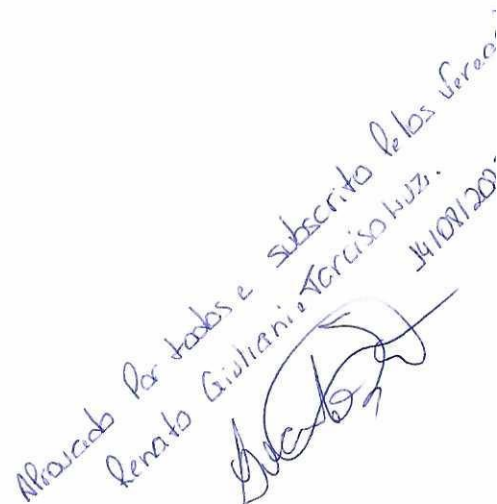 Aprovado Por todos e subscrito Pelos Veread
Renato Giuliani e Tarciso Luz.
14/08/202